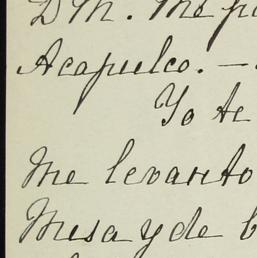 D M. Me p
Acapulco. –
Yo te
Me levanto
Mesa y de b